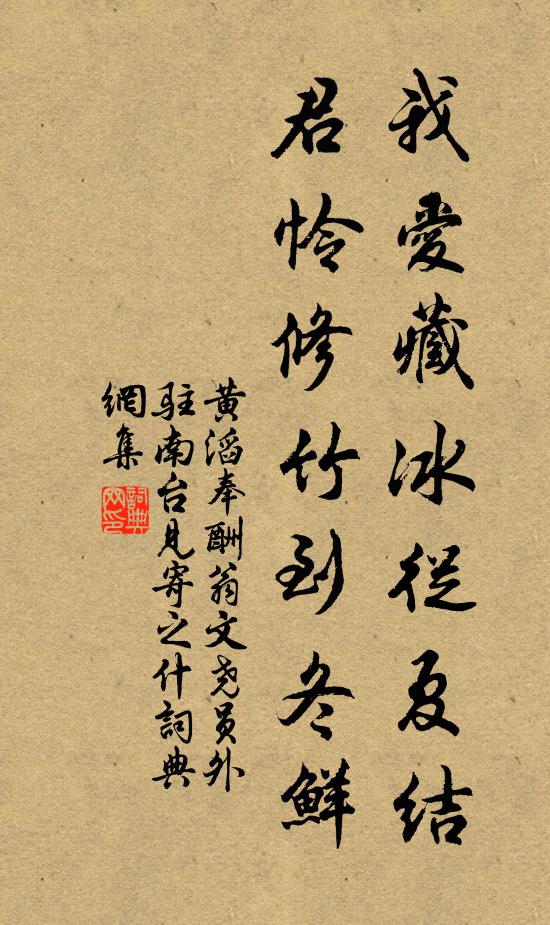 我愛藏冰從夏结
君怜修竹到冬鮮
黄滔奉酬翁文尧员外
駐南台見寄之什詞典
網集
詞典
网印